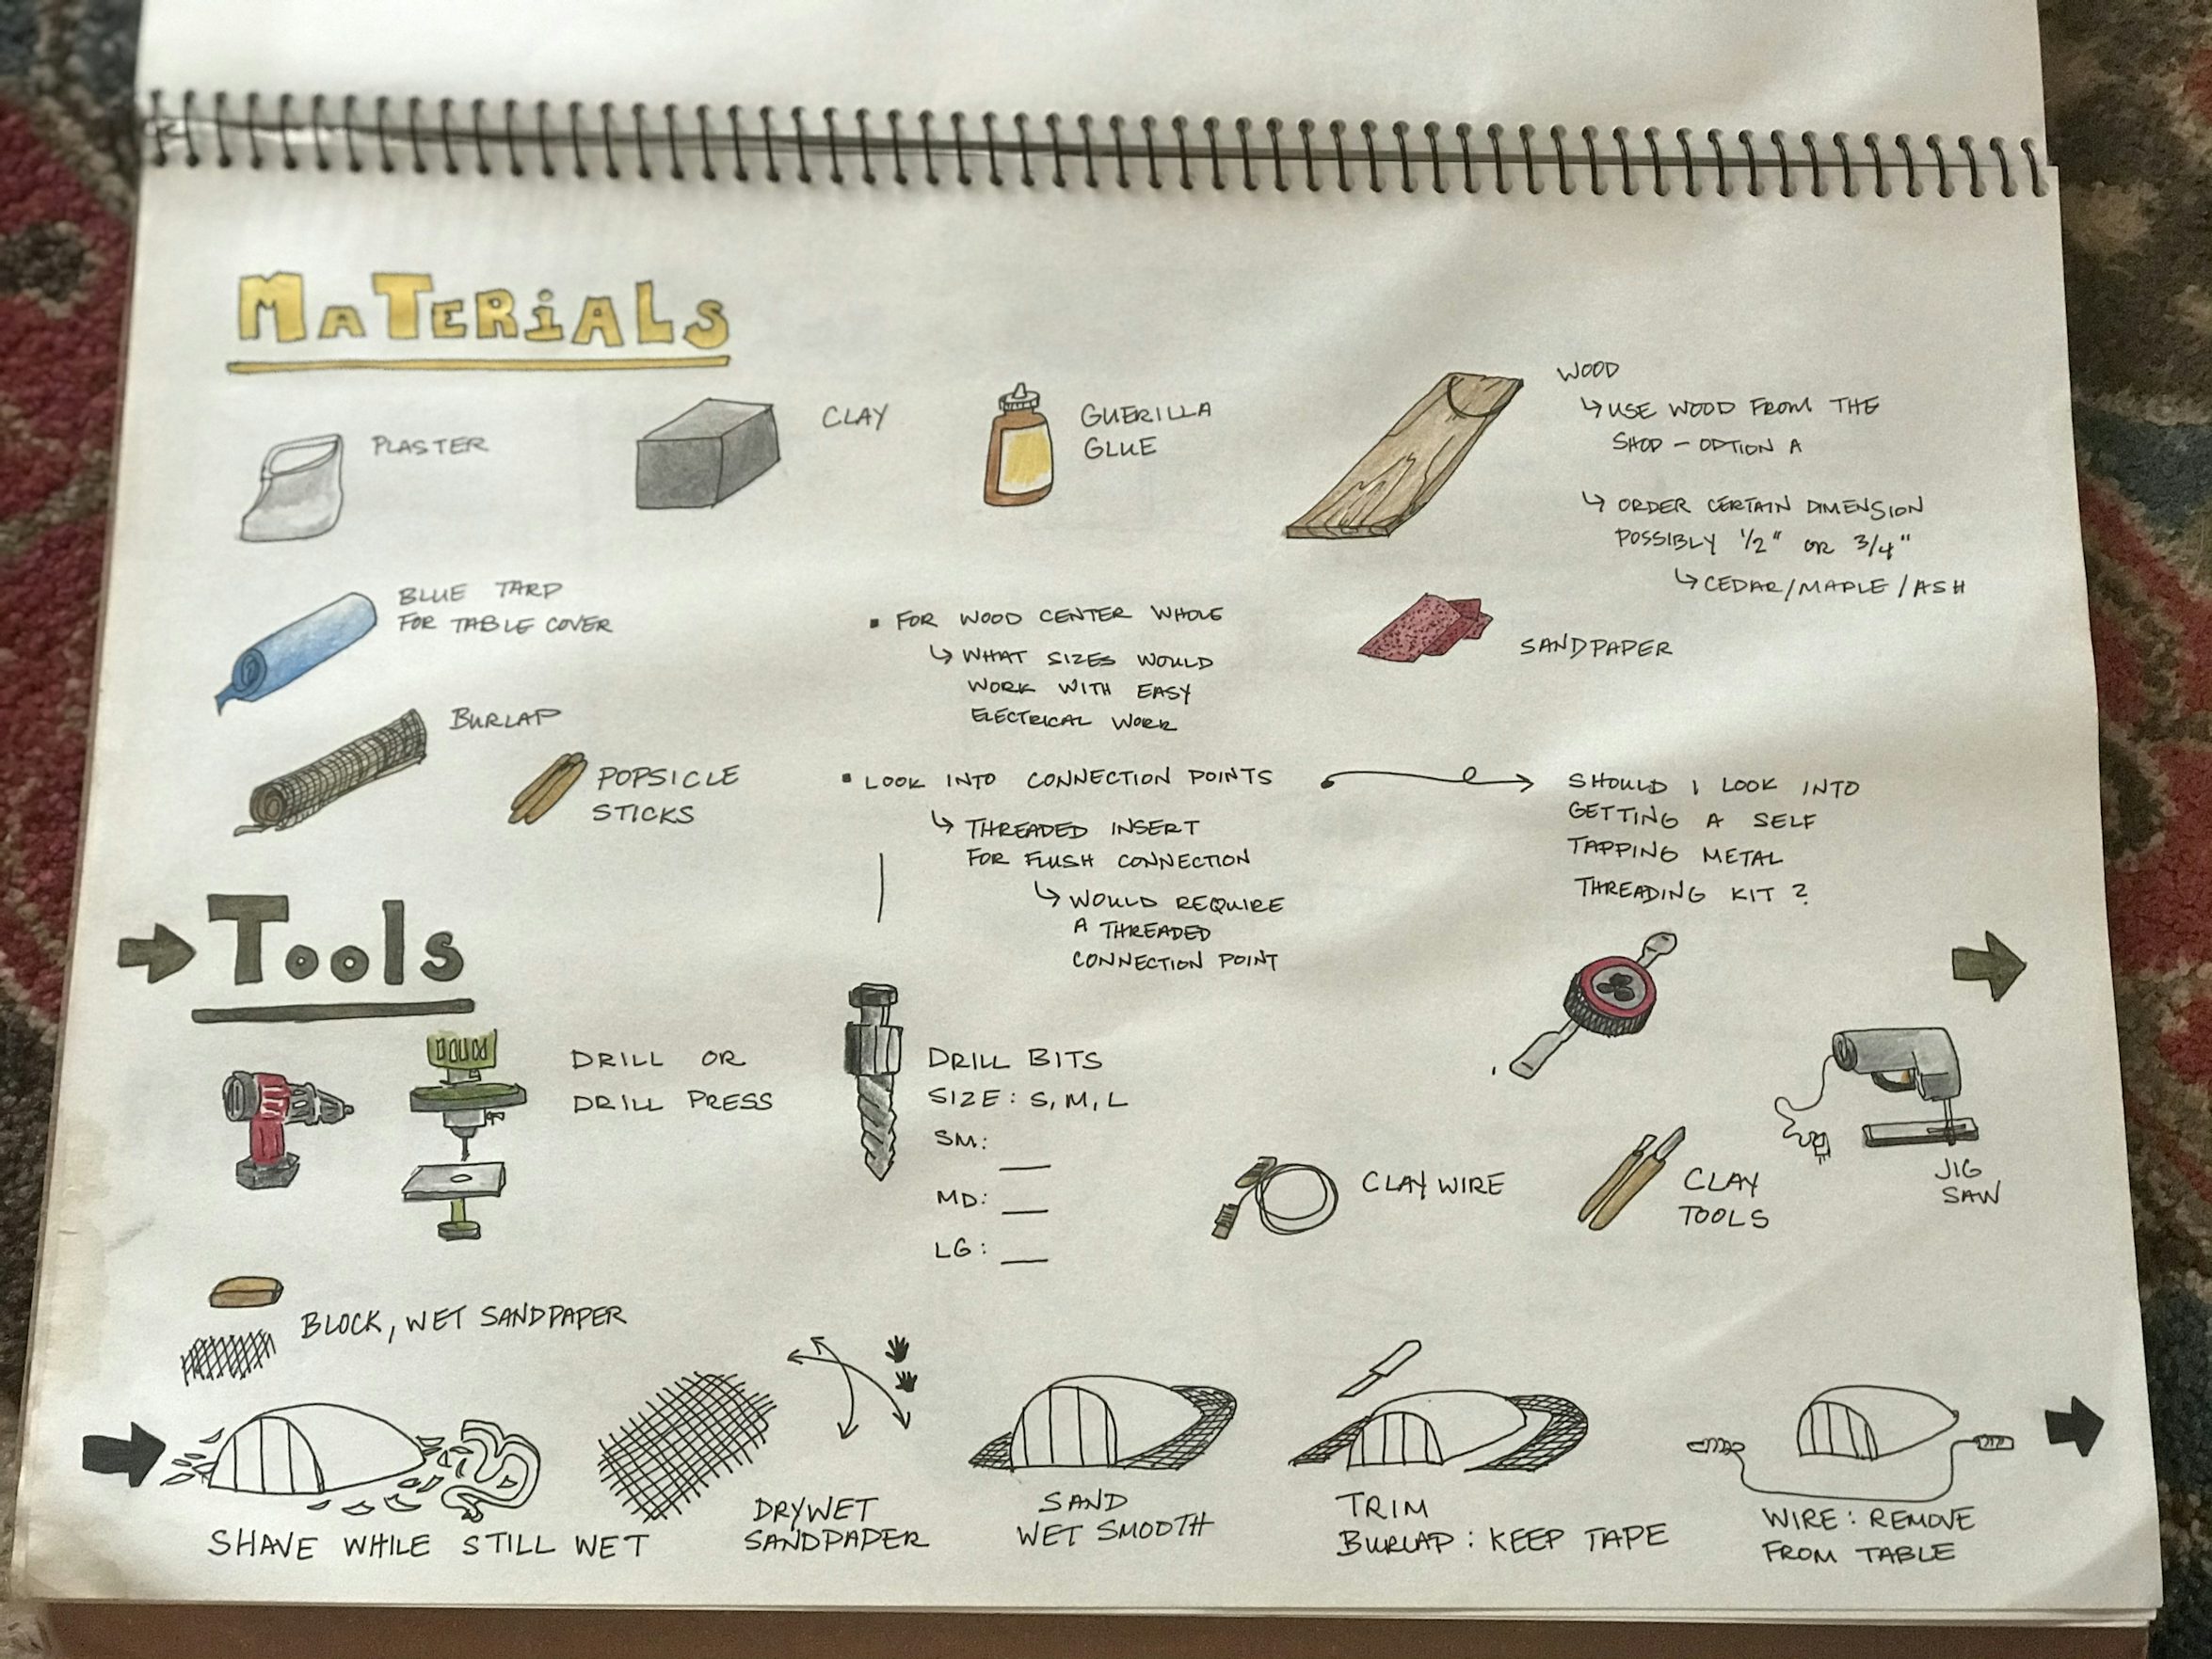 MATERIALS
PLASTER
CLAY
GUERILLA
GLUE
WOOD
↳ USE WOOD FROM THE
SHOP - OPTION A
↳ ORDER CERTAIN DIMENSION
POSSIBLY 1/2" OR 3/4"
↳ CEDAR/MAPLE/ASH
BLUE TARP
FOR TABLE COVER
▪ FOR WOOD CENTER WHOLE
↳ WHAT SIZES WOULD
WORK WITH EASY
ELECTRICAL WORK
SANDPAPER
BURLAP
POPSICLE
STICKS
▪ LOOK INTO CONNECTION POINTS
↳ THREADED INSERT
FOR FLUSH CONNECTION
↳ WOULD REQUIRE
A THREADED
CONNECTION POINT
SHOULD I LOOK INTO
GETTING A SELF
TAPPING METAL
THREADING KIT ?
Tools
DRILL OR
DRILL PRESS
DRILL BITS
SIZE: S, M, L
SM: __
MD: __
LG: __
CLAY WIRE
CLAY
TOOLS
JIG
SAW
BLOCK, WET SANDPAPER
SHAVE WHILE STILL WET
DRYWET
SANDPAPER
SAND
WET SMOOTH
TRIM
BURLAP: KEEP TAPE
WIRE: REMOVE
FROM TABLE